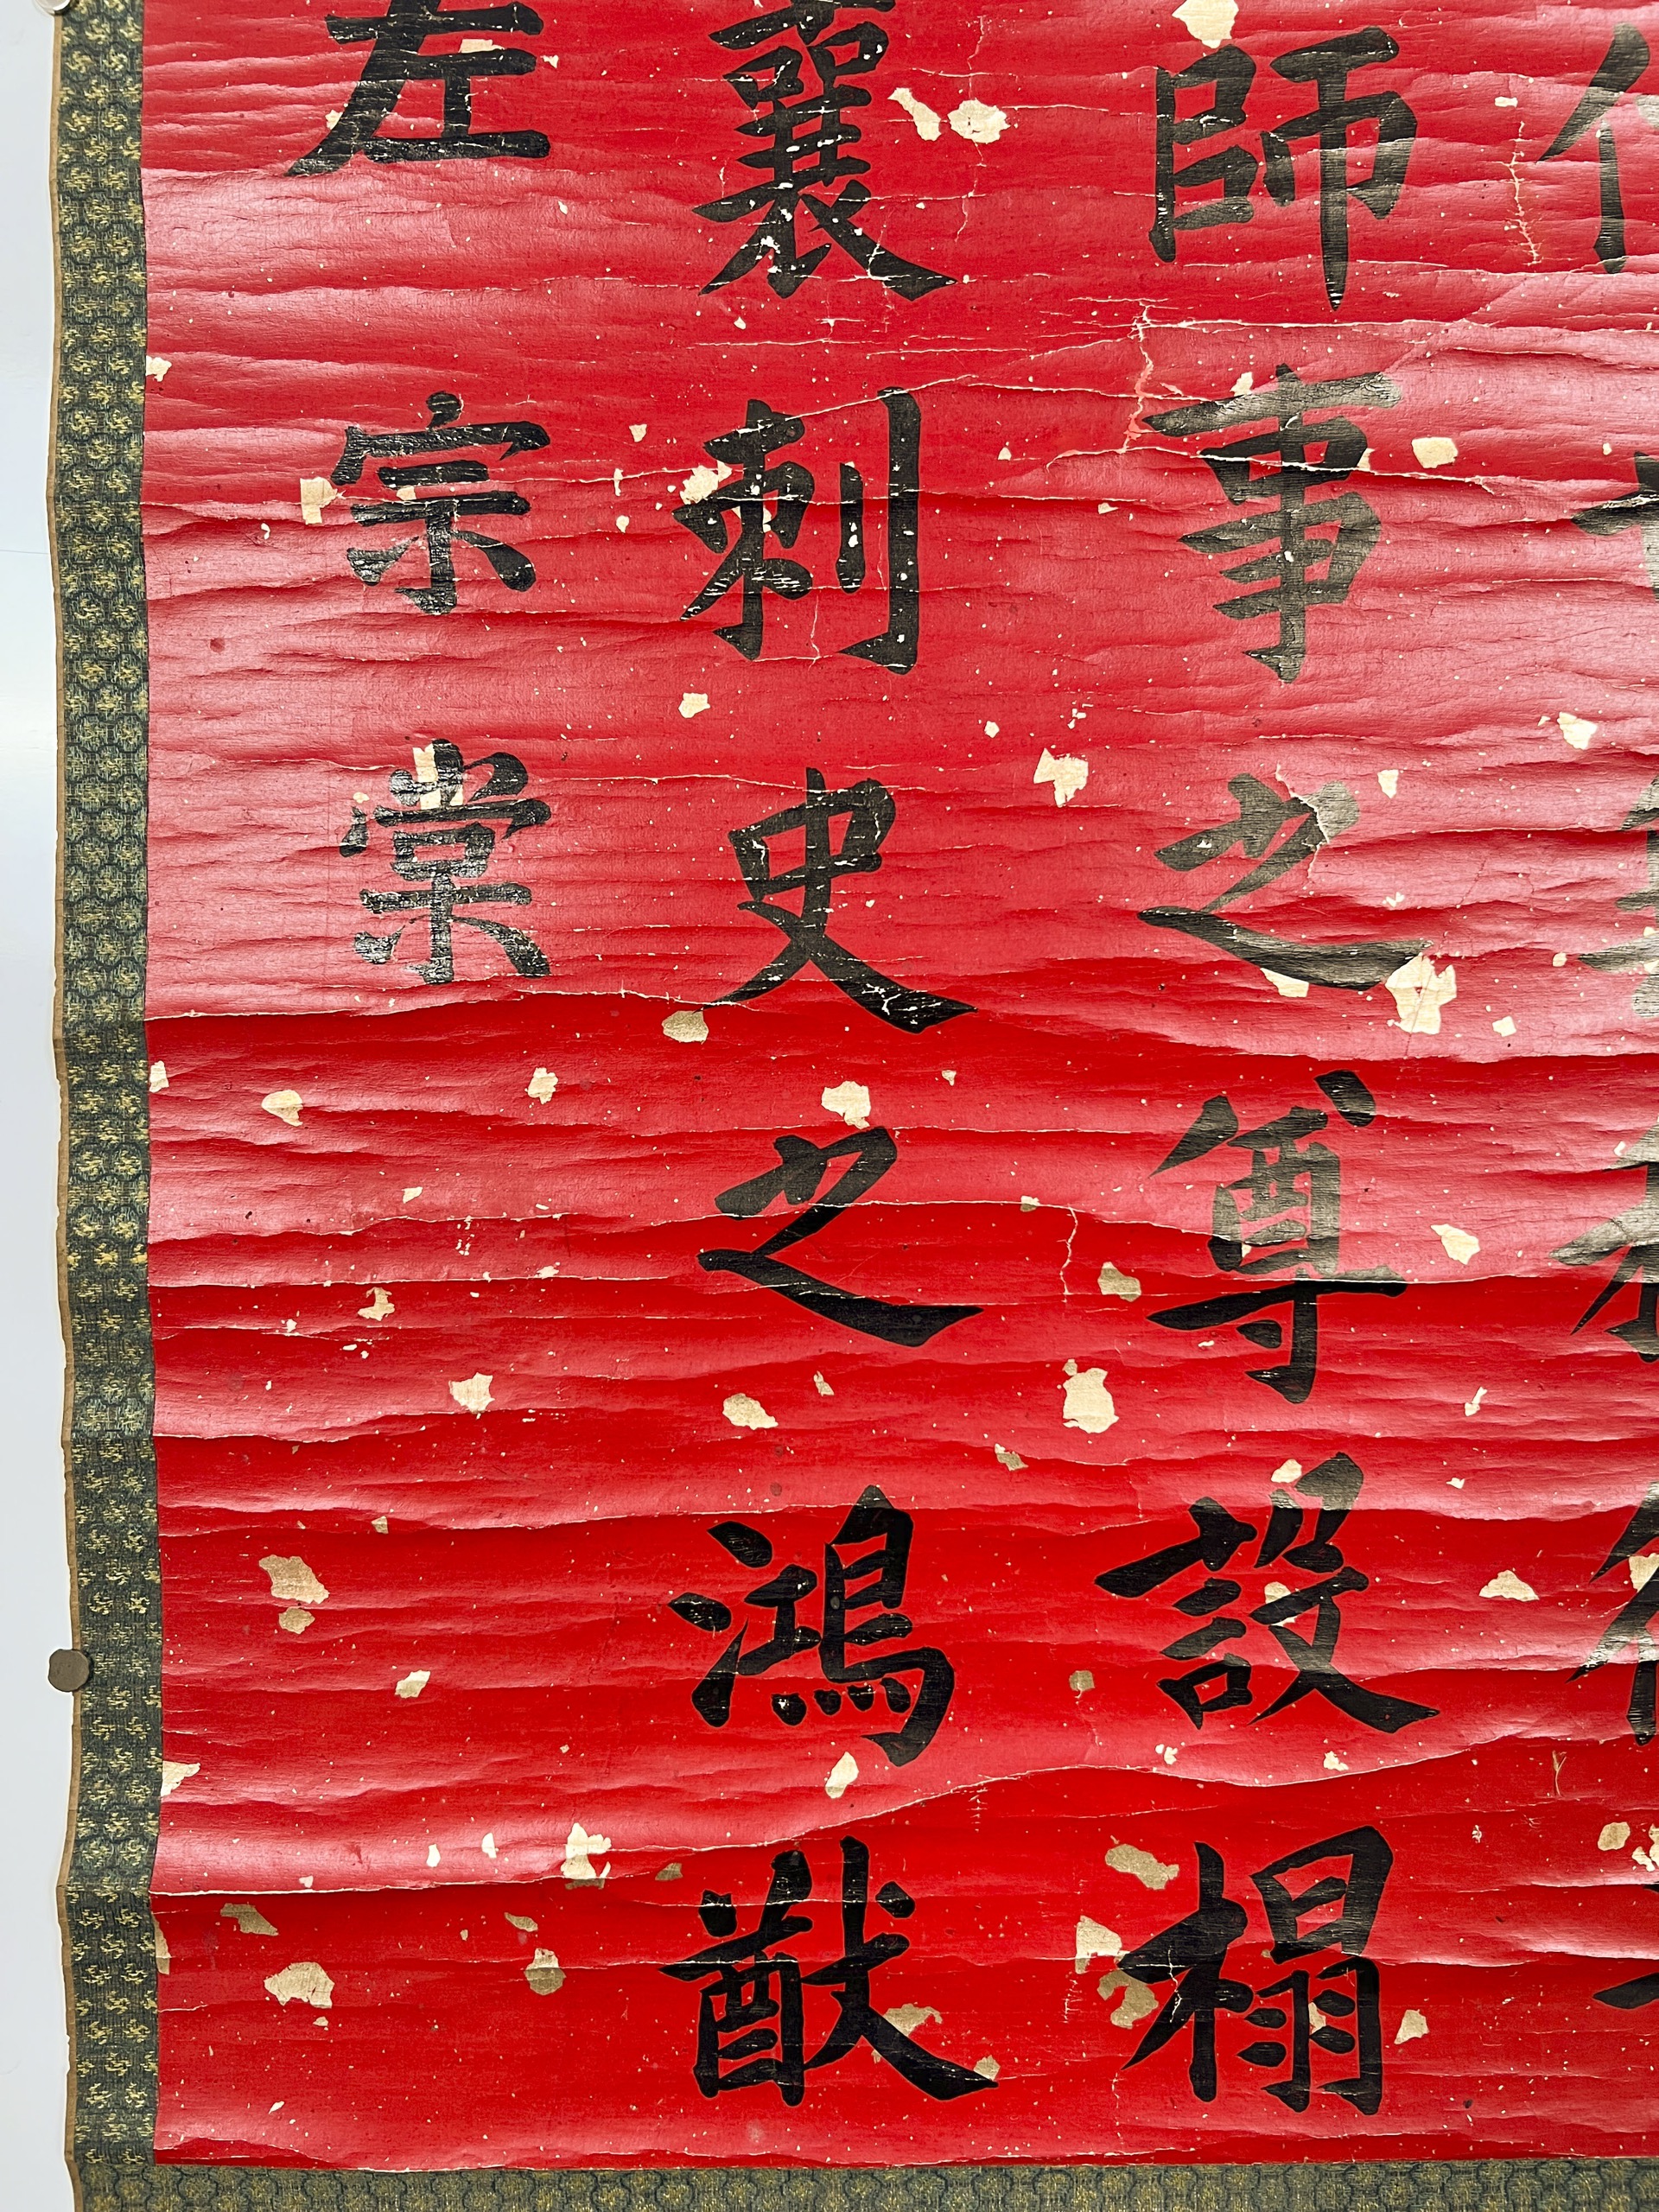 師事之尊設榻
襄刺史之鴻猷
左宗棠